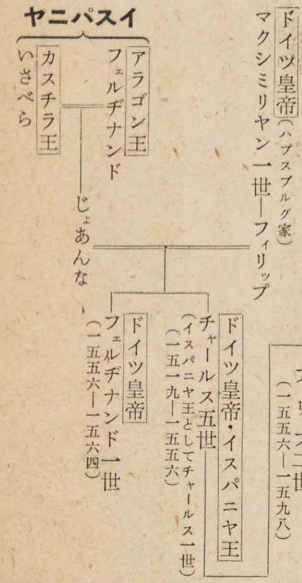 ドイツ皇帝(ハプスブルグ家)
マクシミリヤン一世―フィリップ
イスパニヤ
アラゴン王
フェルヂナンド
カスチラ王
いさべら
じょあんな
(一五五六―一五九八)
ドイツ皇帝・イスパニヤ王
チャールス五世
(イスパニヤ王としてチャールス一世)
(一五一九―一五五六)
ドイツ皇帝
フェルヂナンド一世
(一五五六―一五六四)